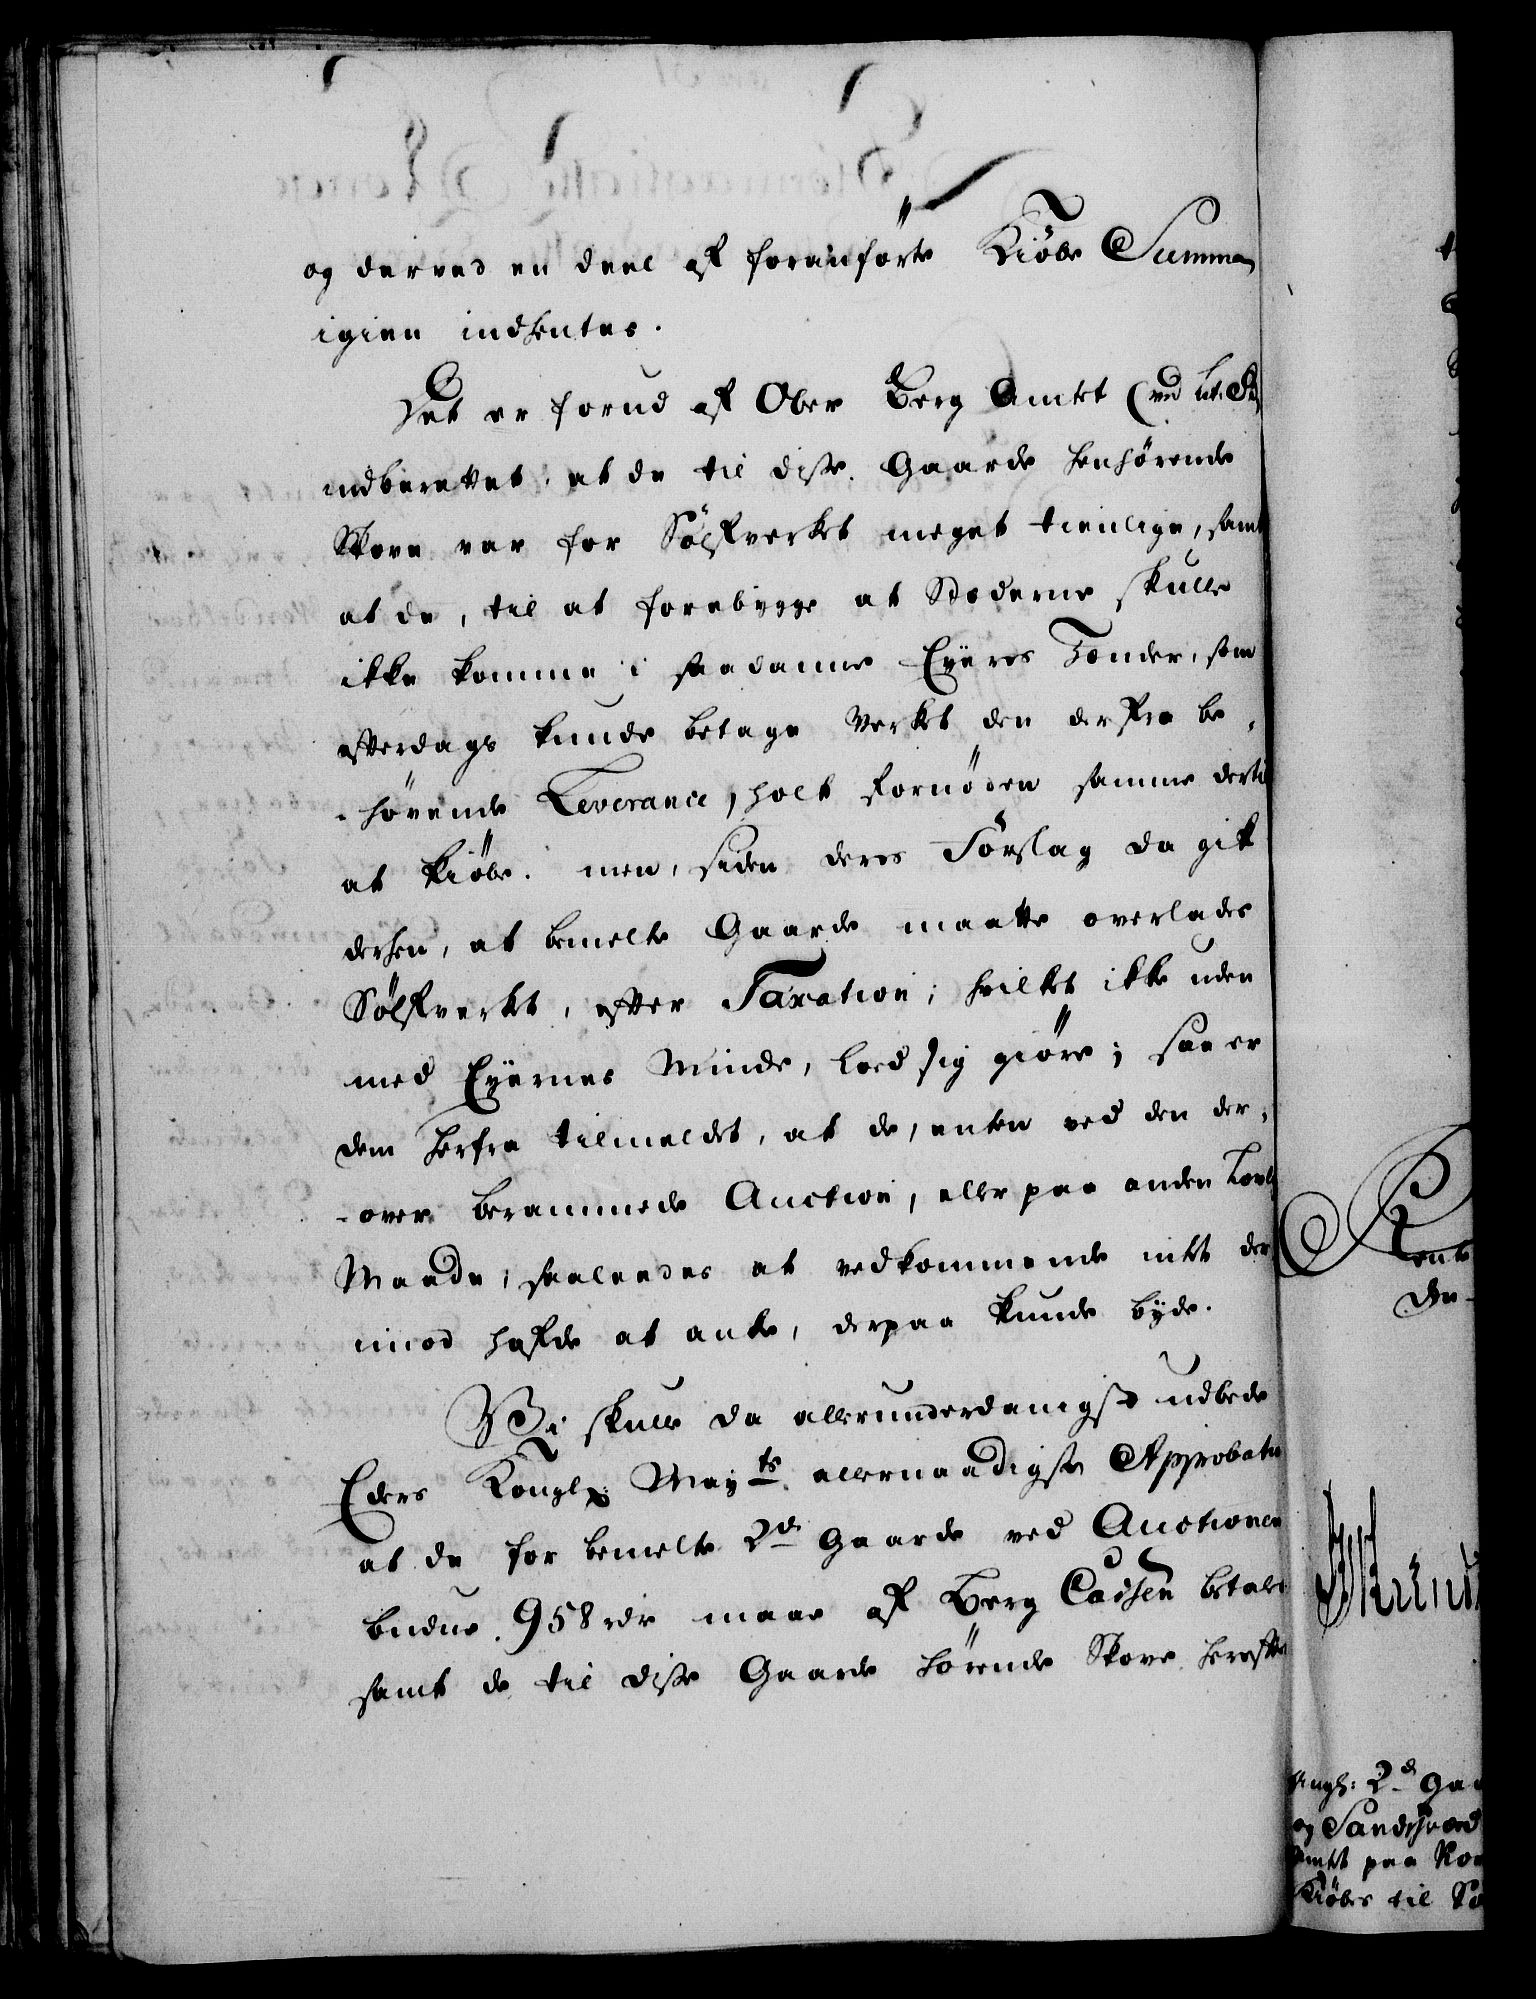 og derved en deel af foranførte Kiøbe Summa
igien indhentes.
Det er forud af Ober Berg Amtet (ved Lit.
indberettet, at de til disse Gaarde henhørende
Skove var for Sølfverket meget tienlige, samt
at de, til at forebygge at Stæderne skulle
ikke komme i saadanne Eyeres Hænder, som
efterdags kunde betage Verket den derfra be-
-hørende Leverance, holt fornøden samme dertil
at kiøbe. men, siden deres Forslag da gik
derhen, at bemelte Gaarde maatte overlades
Sølfverket, efter Taxation; hvilket ikke uden
med Eyernes Minde, loed sig giøre; saa er
dem herfra tilmeldet, at de, enten ved den der-
-over berammede Auction, eller paa anden Lovl:
Maade, saaledes at vedkommende intet der
imod hafde at anke, derpaa kunde byde.
Vi skulle da allerunderdanigst udbede
Eders Kongl. Mayts. allernaadigste Approbation
at de for bemelte 2de Gaarde ved Auctionen
budne 958 rdr maae af Berg Cassen betales
samt de til disse Gaarde hørende Skove herefter
Rente
den
angh: 2de Gaa
og Sandsværd
Amtet paa Kon
Kiøbes til Sø